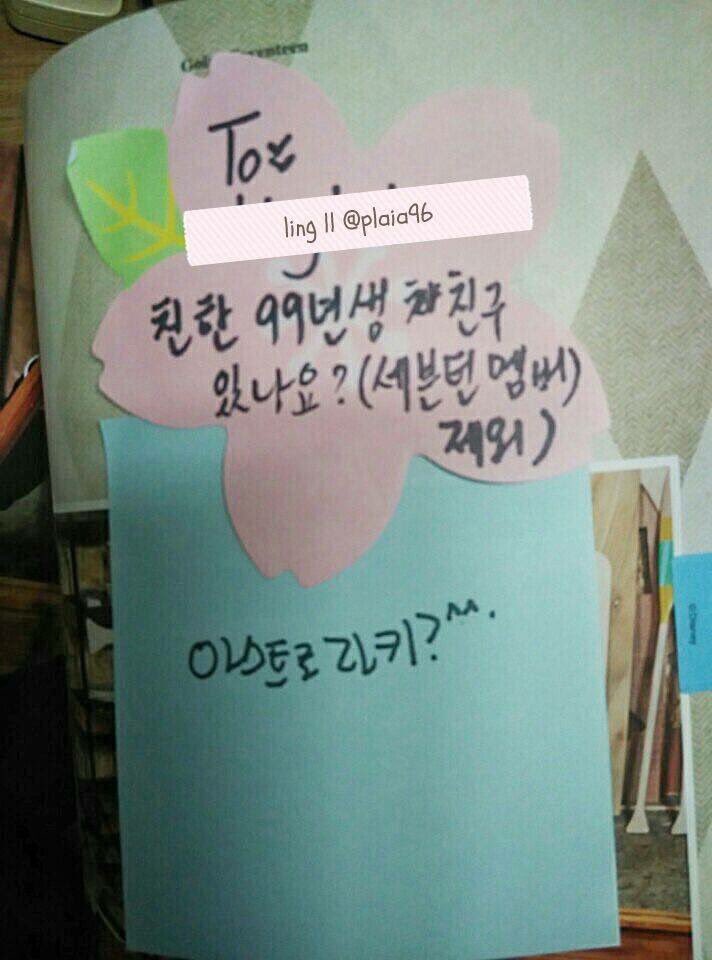 To
ling ll @plaia96
친한 99년생 친구
있나요? (세븐틴 멤버
제외)
아스트로 라키? ^^.
©Disney